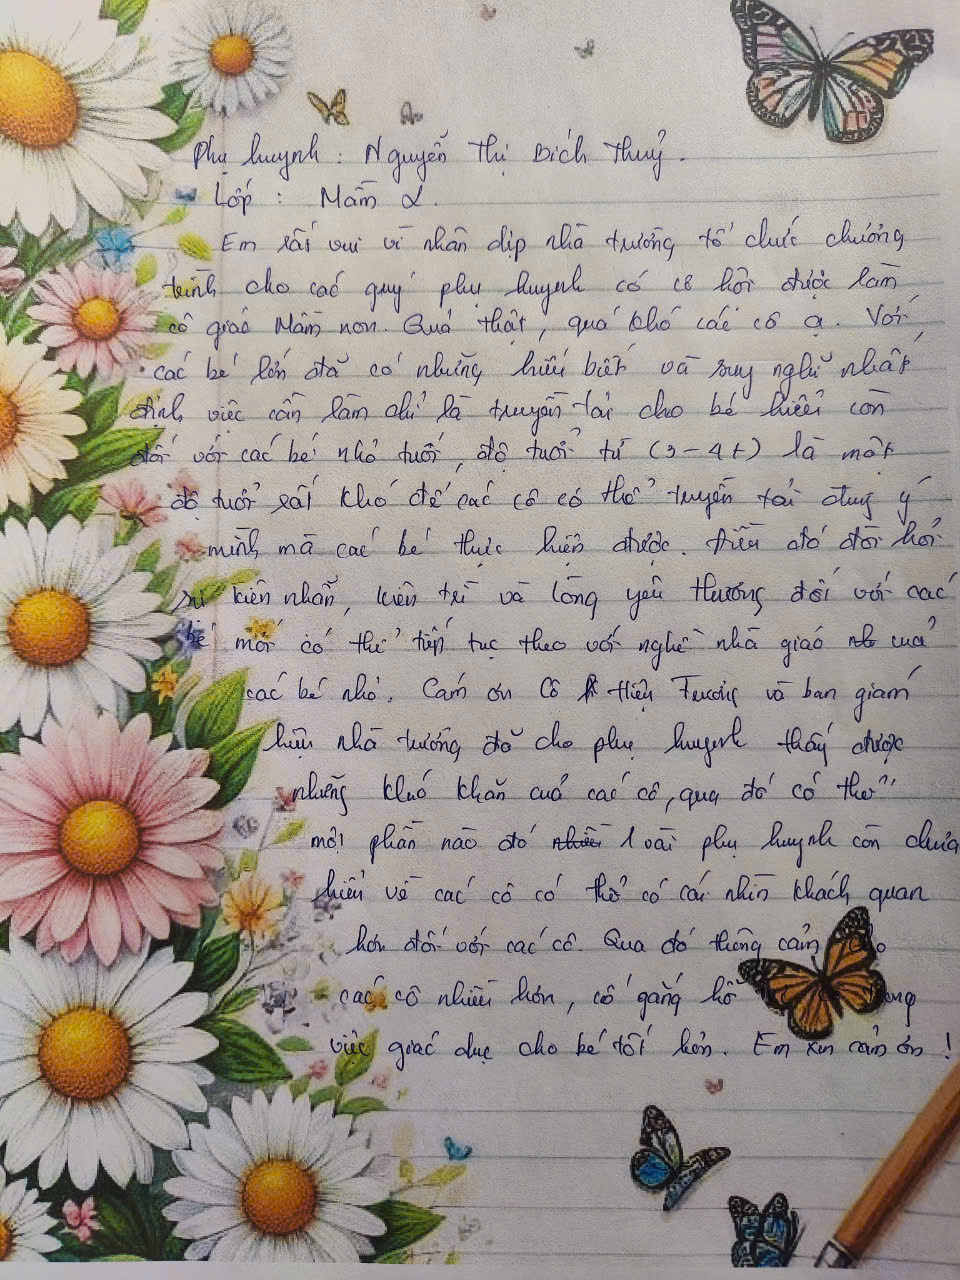 Phụ huynh : Nguyễn Thị Bích Thuỷ.
Lớp : Mầm 2.
Em rất vui vì nhân dịp nhà trường tổ chức chương
trình cho các quý phụ huynh có cơ hội được làm
cô giáo Mầm non. Quả thật, quá khó các cô ạ. Với
các bé lớn đã có những hiểu biết và suy nghĩ nhất
định việc cần làm chỉ là truyền tải cho bé hiểu còn
đối với các bé nhỏ tuổi, độ tuổi từ (3-4t) là một
độ tuổi rất khó để các cô có thể truyền tải đúng ý
mình mà các bé thực hiện được. Điều đó đòi hỏi
sự kiên nhẫn, kiên trì và lòng yêu thương đối với các
bé mới có thể tiếp tục theo với nghề nhà giáo của
các bé nhỏ. Cám ơn Cô Hiệu Trưởng và ban giám
hiệu nhà trường đã cho phụ huynh thấy được
những khó khăn của các cô, qua đó có thể
một phần nào đó 1 vài phụ huynh còn chưa
hiểu về các cô có thể có cái nhìn khách quan
hơn đối với các cô. Qua đó thông cảm
các cô nhiều hơn, cố gắng hỗ
việc giáo dục cho bé tốt hơn. Em xin cảm ơn !